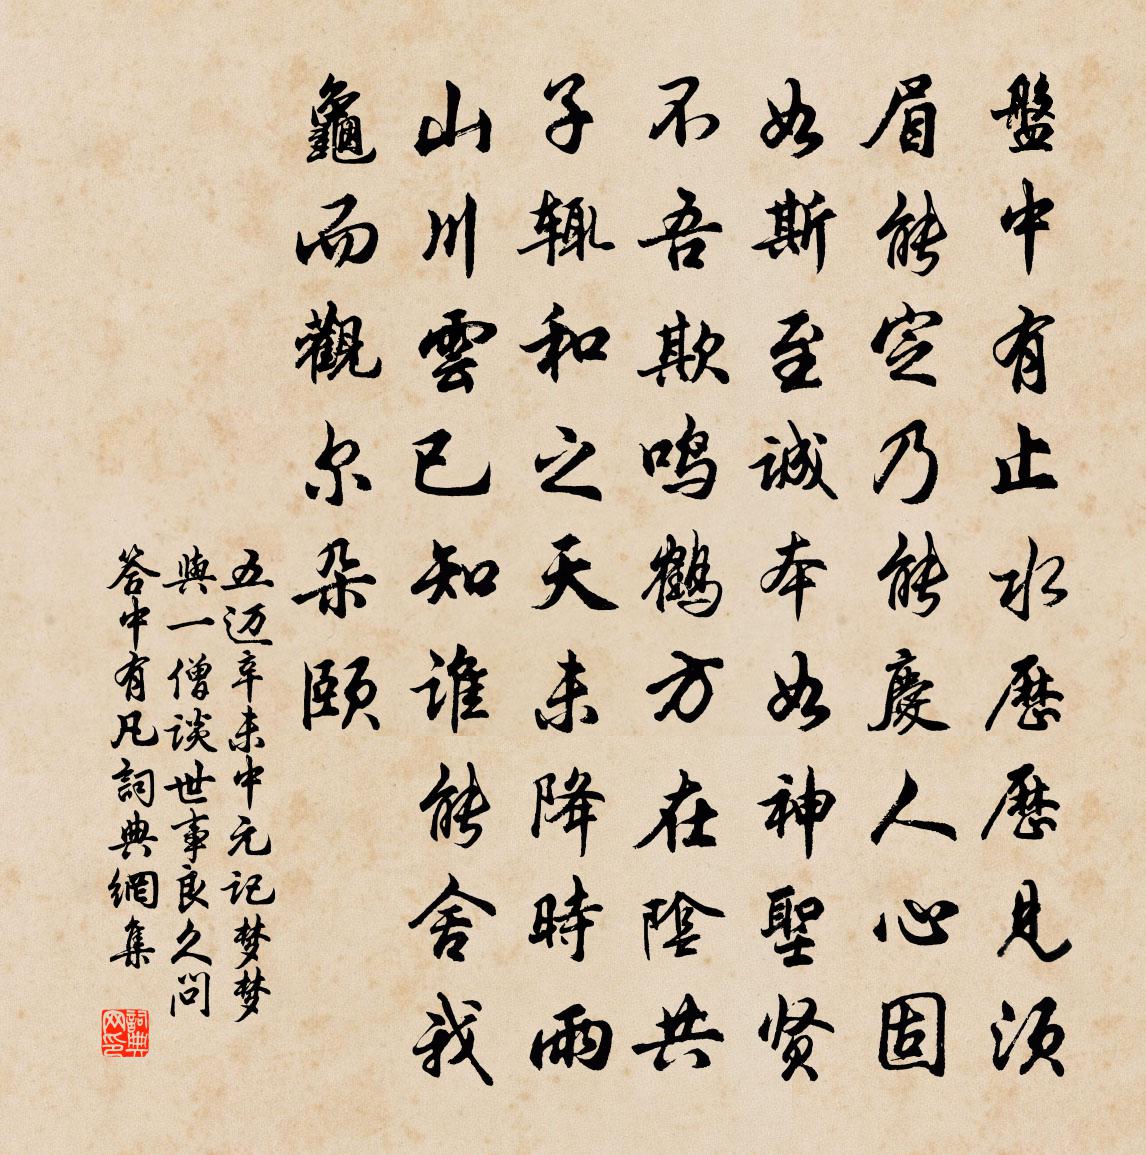 盤中有止水歷歷見須
眉能定乃能慶人心固
如斯至誠本如神聖賢
不吾欺鳴鶴方在陰共
子輒和之天未降時雨
山川雲已知誰能舍我
龜而觀尔朵頤
五迈辛未中元记梦梦
與一僧谈世事良久问
答中有凡詞典網集
詞典网印